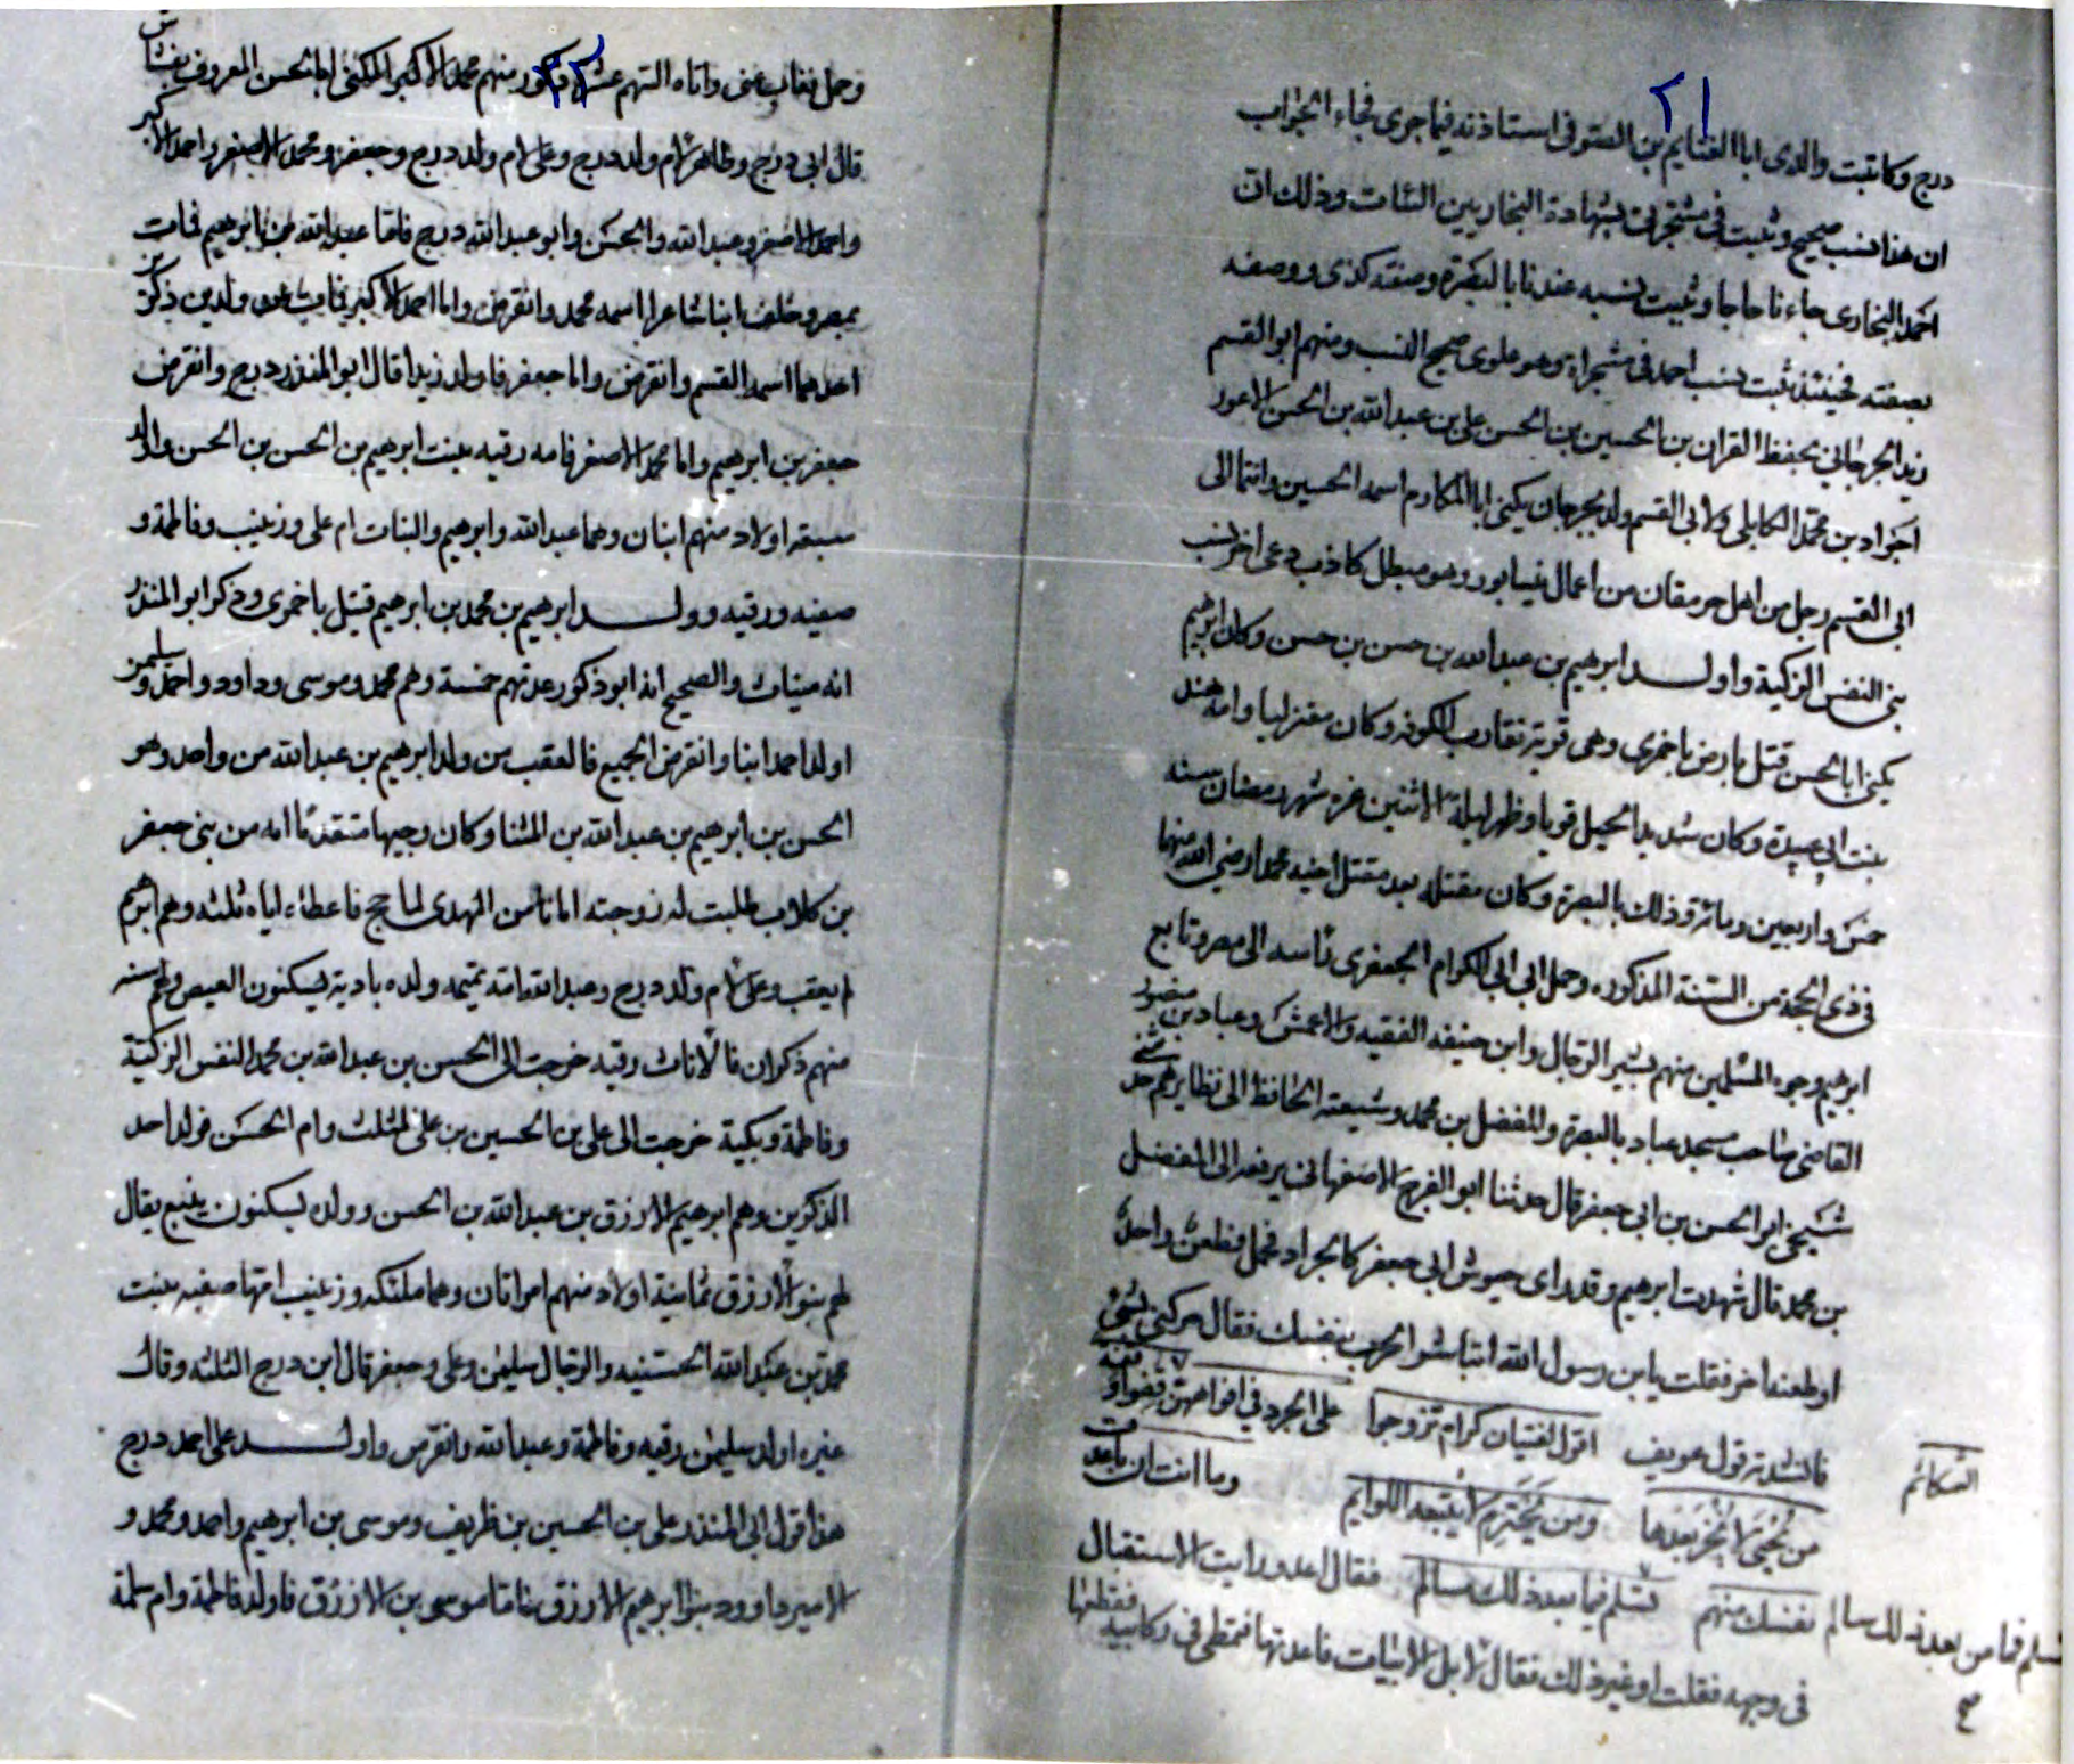 ٢١
درج وكاتبت والدى ابا الغنايم بن الصوفى استاذنه فيما جرى فجاء الجواب
ان هذا نسب صحيح وثبت فى مشجرتى بشهادة البخاريين الثقات وذلك ان
احمد البخارى جاءنا حاجا وثبت نسبه عندنا بالبصرة وصفته كذى ووصفه
بصفته فحينئذ ثبت نسب احمد فى مشجراتى وهو علوى صحيح النسب ومنهم ابو القسم
زيد الجرجانى يحفظ القران بن الحسين بن الحسن على بن عبد الله بن الحسن الاعور
الجواد بن محمد الكابلى ولابى القسم ولد بجرجان يكنى ابا المكارم اسمه الحسين وانتما الى
ابى القسم رجل من اهل جرمقان من اعمال نيسابور وهو مبطل كاذب دعى اخر نسب
بنى النفس الزكية واولد ابرهيم بن عبد الله بن حسن بن حسن وكان ابرهيم
يكنى ابا الحسن قتل بارض باخمرى وهى قرية تقارب الكوفه وكان معتزليا وامه هند
بنت ابى عبيدة وكان شديد الحيل قويا وظهر ليلة الاثنين غره شهر رمضان سنه
خمس واربعين ومائة وذلك بالبصرة وكان مقتله بعد مقتل اخيه محمد رضى الله عنهما
فى ذى الحجة من السنة المذكوره وحمل ابن ابى الكرام الجعفرى راسه الى مصر وتابع
ابرهيم وجوه المسلمين منهم بشير الرحال وابن حنيفه الفقيه والاعمش وعباد بن منصور
القاضى صاحب مسجد عباد بالبصرة والمفضل بن محمد وشيعته الحافظ الى نظايرهم حد ثنى
شيخى ابو الحسن بن ابى جعفر قال حدثنا ابو الفرج الاصفهانى يرفعه الى المفضل
بن محمد قال شهدت ابرهيم وقد راى جيوش ابى جعفر كالجراد فحمل فطعن واحدا
او طعنه اخر فقلت يابن رسول الله اتباشر الحرب بنفسك فقال حركنى بشى
فانشدته قول عويف اقول لفتيان كرام تزوجوا على الجرد فى افواههن
الشكائم
من يحيى لا يخز بعدها ومن يخترم لا يتبعه اللوايم وما انت ان باعدت
نفسك منهم لتسلم فيما بعد ذلك سالم فقال اعد ورايت الاستقبال
لتسلم فما من بعد ذلك سالم
فى وجهه فقلت او غير ذلك فقال لا بل الابيات فاعدتها فتمطى فى ركابيه فقطعها
٢٢
وحمل فغاب عنى واتاه السهم عشرة ذكور منهم محمد الاكبر المكنى ابا الحسن المعروف بقشاش
قال ابى درج وطاهر لام ولد درج وعلى لام ولد درج وجعفر ومحمد الاصغر واحمد الاكبر
واحمد الاصغر وعبد الله والحسن وابو عبد الله درج فاما عبد الله بن ابرهيم فمات
بمصر وخلف ابنا شاعرا اسمه محمد وانقرض واما احمد الاكبر فمات عن ولدين ذكرين
احدهما اسمه القسم وانقرض واما جعفر فاولد زيدا قال ابو المنذر درج وانقرض
جعفر بن ابرهيم واما محمد الاصغر فامه رقيه بنت ابرهيم بن الحسن بن الحسن واولد
سبعة اولاد منهم ابنان وهما عبد الله وابرهيم والبنات ام على وزينب وفاطمة و
صفيه ورقيه وولد ابرهيم بن محمد بن ابرهيم قتيل باخمرى وذكر ابو المنذر
انه ميناث والصحيح انه ابو ذكور عدتهم خمسة وهم محمد وموسى وداود واحمد وسليمن
اولد احمد ابنا وانقرض الجميع فالعقب من ولد ابرهيم بن عبد الله من واحد وهو
الحسن بن ابرهيم بن عبد الله بن المثنا وكان وجيها متقدما امه من بنى جعفر
بن كلاب طلبت له زوجته امانا من المهدى لما حج فاعطاها اياه ثلثه وهم ابرهيم
لم يعقب وعلى لام ولد درج وعبد الله امه تميمه ولده بادية يسكنون العيص وهم ستة
منهم ذكران فالاناث رقيه خرجت الى الحسن بن عبد الله بن محمد النفس الزكية
وفاطمة وبكية خرجت الى على بن الحسين بن على المثلث وام الحسن فولد احد
الذكرين وهم ابرهيم الازرق بن عبد الله بن الحسن وولده يسكنون ينبع يقال
لهم بنو الازرق ثمانية اولاد منهم امراتان وهما ملتكه وزينب امهما صفيه بنت
محمد بن عبد الله الحسنيه والرجال سليمن وعلى وجعفر قال ابن درج الثلثه وقال
غيره اولد سليمن رقيه وفاطمة وعبد الله وانقرض واولد على احمد درج
هذا قول ابى المنذر على بن الحسين بن طريف وموسى بن ابرهيم واحمد ومحمد و
الامير داوود بنو ابرهيم الازرق فاما موسى بن الازرق فاولد فاطمة وام سلمة